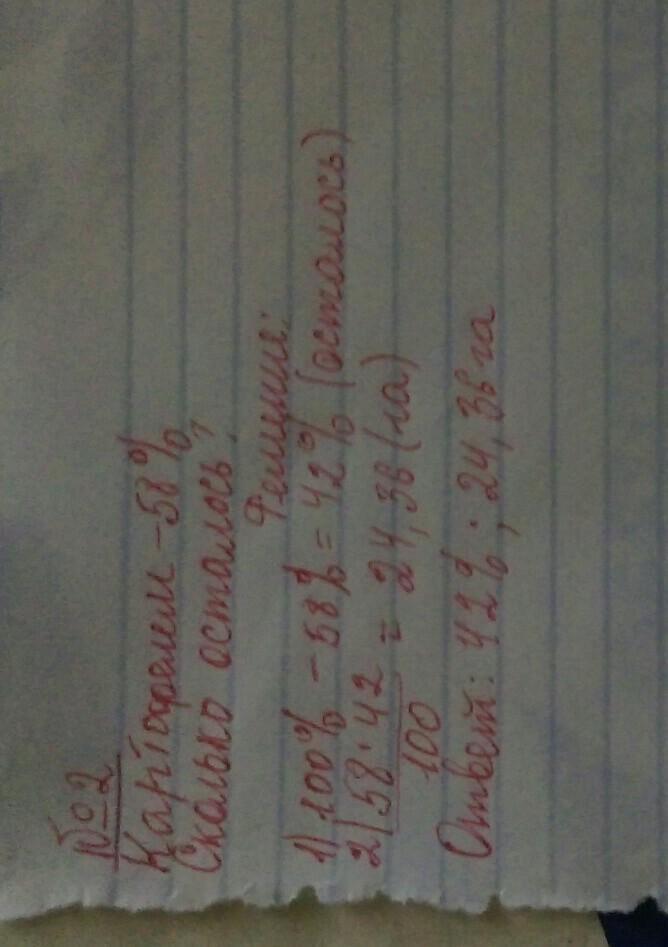 №2
Картофелем - 58%
Сколько осталось?
Решение:
1) 100% - 58% = 42% (осталось)
2) 58 · 42 / 100 = 24,36 (га)
Ответ: 42%; 24,36 га